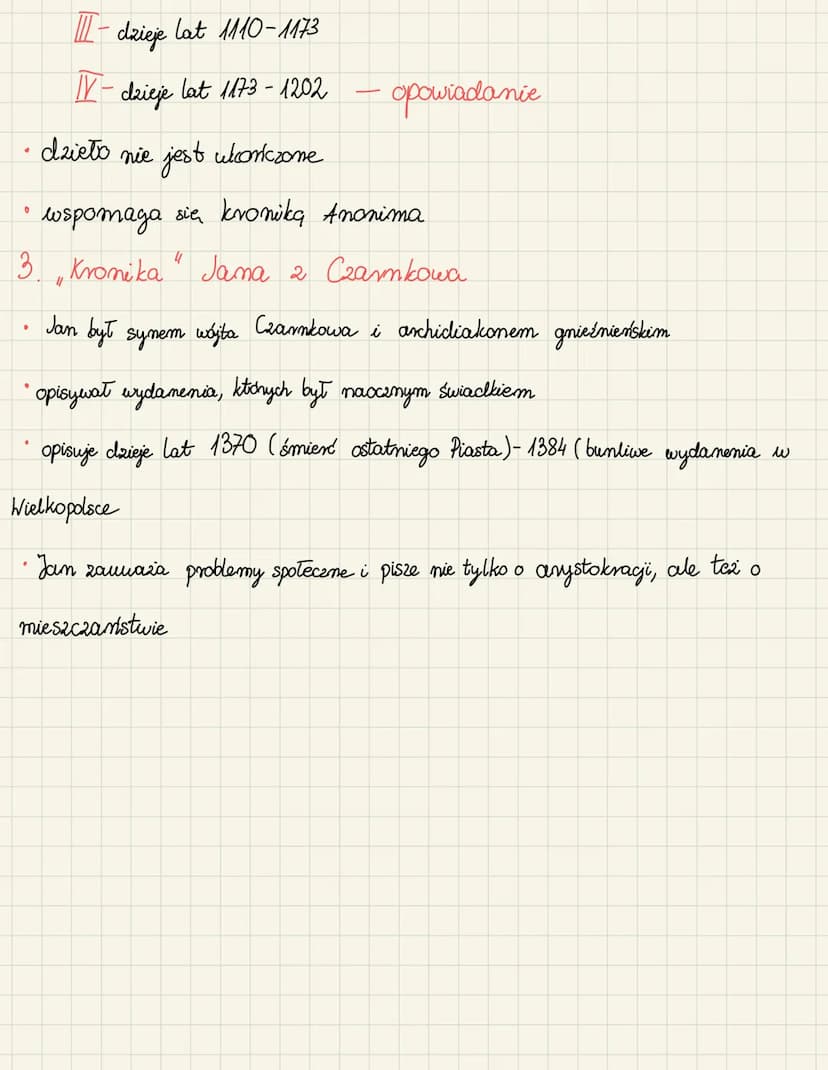 III - dzieje lat 1110-1173
IV - dzieje lat 1173 - 1202 — opowiadanie
• dzieło nie jest ukończone
• wspomaga się kroniką Anonima
3. „Kronika" Jana z Czarnkowa
• Jan był synem wójta Czarnkowa i archidiakonem gnieźnieńskim
• opisywał wydarzenia, których był naocznym świadkiem
• opisuje dzieje lat 1370 (śmierć ostatniego Piasta) - 1384 (burzliwe wydarzenia w
Wielkopolsce
• Jan zauważa problemy społeczne i pisze nie tylko o arystokracji, ale też o
mieszczaństwie